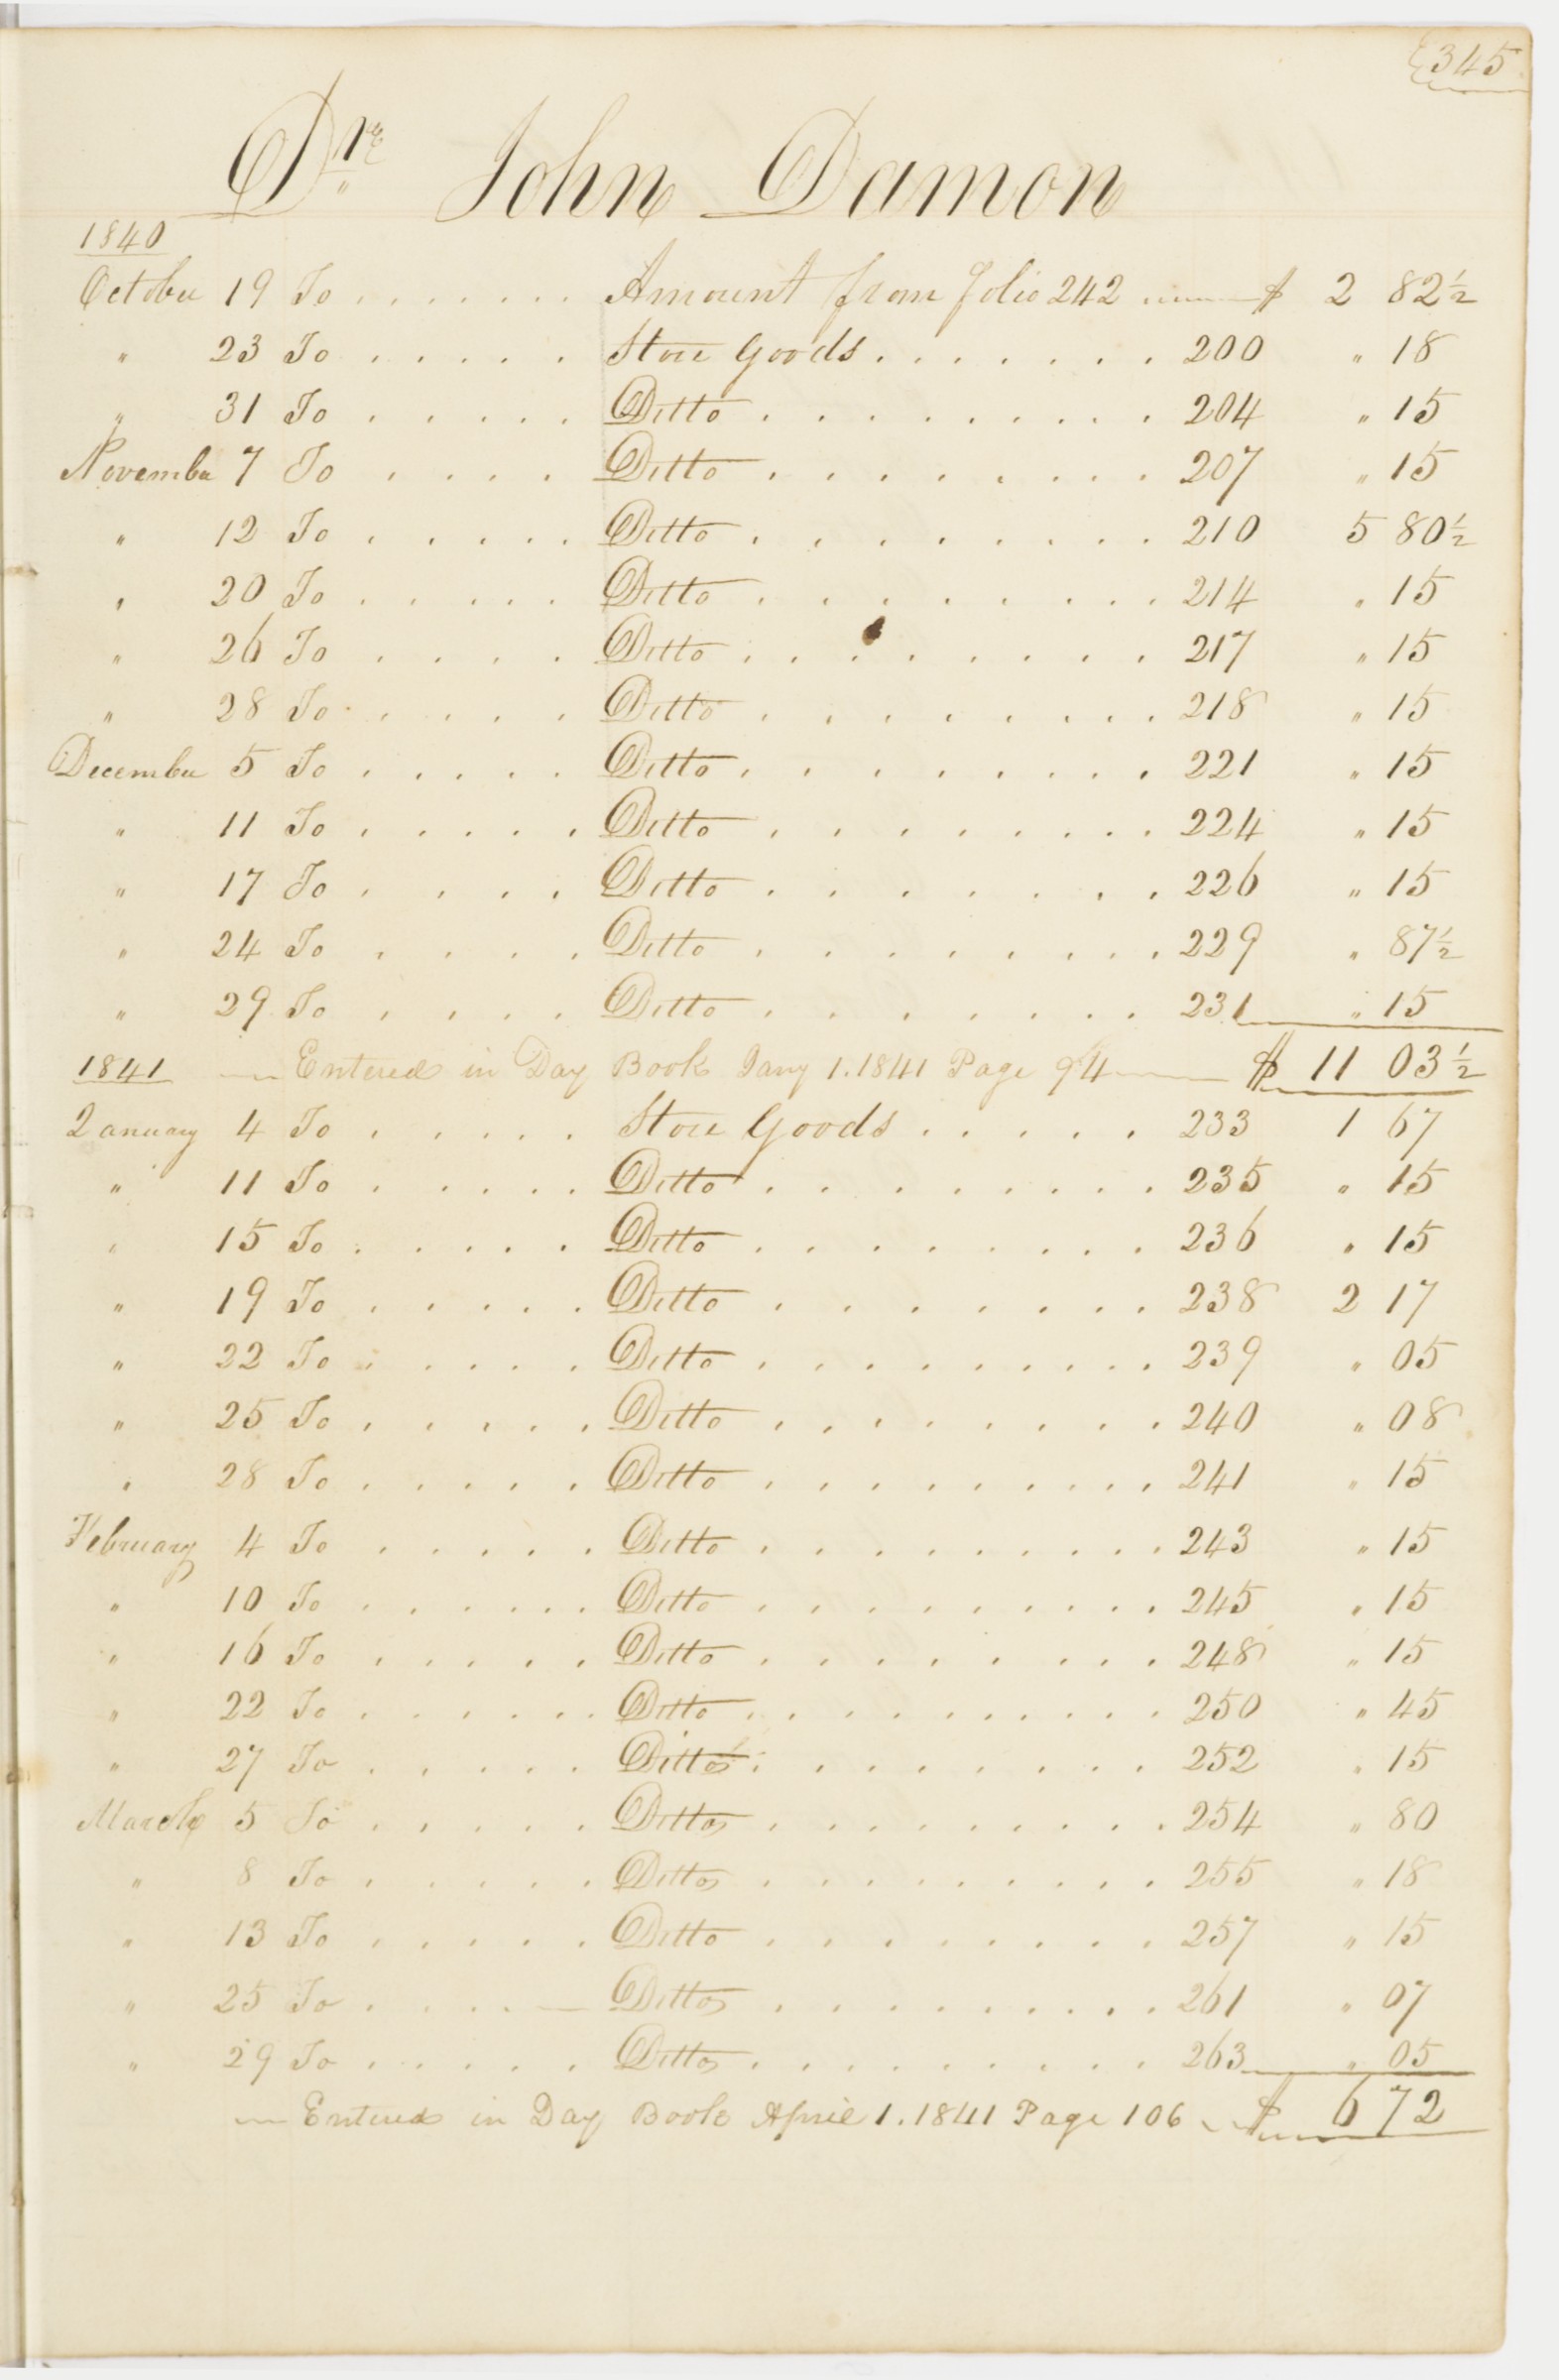 345
Dr. John Damon
1840
October 19 To . . . . . . . Amount from folio 242 $ 2 82½
" 23 To . . . . . Store Goods . . . . . . . 200 " 18
" 31 To . . . . . Ditto . . . . . . . . . 204 " 15
November 7 To . . . . Ditto . . . . . . . . . 207 " 15
" 12 To . . . . . Ditto . . . . . . . . . 210 5 80½
" 20 To . . . . . Ditto . . . . . . . . . 214 " 15
" 26 To . . . . Ditto . . . . . . . . . 217 " 15
" 28 To . . . . . Ditto . . . . . . . . . 218 " 15
December 5 To . . . . . Ditto . . . . . . . . . 221 " 15
" 11 To . . . . . Ditto . . . . . . . . . 224 " 15
" 17 To . . . . Ditto . . . . . . . . . 226 " 15
" 24 To . . . . Ditto . . . . . . . . . 229 " 87½
" 29 To . . . . Ditto . . . . . . . . 231 " 15
1841 — Entered in Day Book Jany 1. 1841 Page 94 — $ 11 03½
January 4 To . . . . . Store Goods . . . . . 233 1 67
" 11 To . . . . . Ditto . . . . . . . . . 235 " 15
" 15 To . . . . . Ditto . . . . . . . . . 236 " 15
" 19 To . . . . . Ditto . . . . . . . . 238 2 17
" 22 To . . . . . Ditto . . . . . . . . . 239 " 05
" 25 To . . . . . Ditto . . . . . . . . 240 " 08
" 28 To . . . . . Ditto . . . . . . . . . 241 " 15
February 4 To . . . . . Ditto . . . . . . . . . 243 " 15
" 10 To . . . . . . Ditto . . . . . . . . . 245 " 15
" 16 To . . . . . Ditto . . . . . . . . . 248 " 15
" 22 To . . . . . . Ditto . . . . . . . . . 250 " 45
" 27 To . . . . . Ditto . . . . . . . . 252 " 15
March 5 To . . . . . Ditto . . . . . . . . . 254 " 80
" 8 To . . . . . Ditto . . . . . . . . . 255 " 18
" 13 To . . . . . Ditto . . . . . . . . 257 " 15
" 25 To . . . . — Ditto . . . . . . . . . 261 " 07
" 29 To . . . . . Ditto . . . . . . . . . 263 " 05
— Entered in Day Book April 1. 1841 Page 106 $ 6 72